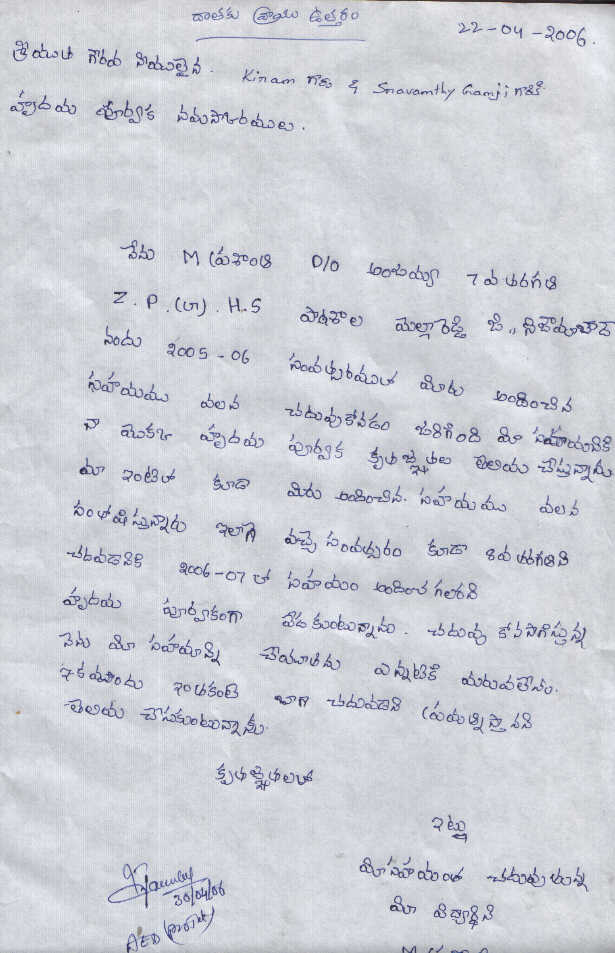 దాతకు వ్రాయు ఉత్తరం
22-04-2006.
శ్రీయుత గౌరవ నీయులైన. Kiran గారు & Sravanthy Gamji గారికి
హృదయ పూర్వక నమస్కారములు.
నేను M ప్రశాంతి D/O అంజయ్య 7వ తరగతి
Z.P.(బా).H.S పాఠశాల యెల్లారెడ్డి జి,, నిజామాబాద్
నందు 2005-06 సంవత్సరములో మీరు అందించిన
సహాయము వలన చదువుకోవడం జరిగింది మీ సహాయానికి
నా యొక్క హృదయ పూర్వక కృతజ్ఞతలు తెలియ చేస్తున్నాను
మా ఇంటిలో కూడా మీరు అందించిన సహాయము వలన
సంతోషిస్తున్నారు ఇలాగే వచ్చే సంవత్సరం కూడా 8వ తరగతిని
చదవడానికి 2006-07 లో సహాయం అందించ గలరని
హృదయ పూర్వకంగా వేడుకుంటున్నాను. చదువు కోనసాగిస్తున్న
నేను మీ సహాయాన్ని చేయూతను ఎన్నటికి మరువలేను.
ఇక ముందు ఇంతకంటే బాగా చదువడాని ప్రయత్నిస్తానని
తెలియ చేసుకుంటున్నాను
కృతజ్ఞతలతో
ఇట్లు
మీ సహాయంతో చదువుతున్న
మీ విద్యార్థిని
30/04/06
AEO (Proj)